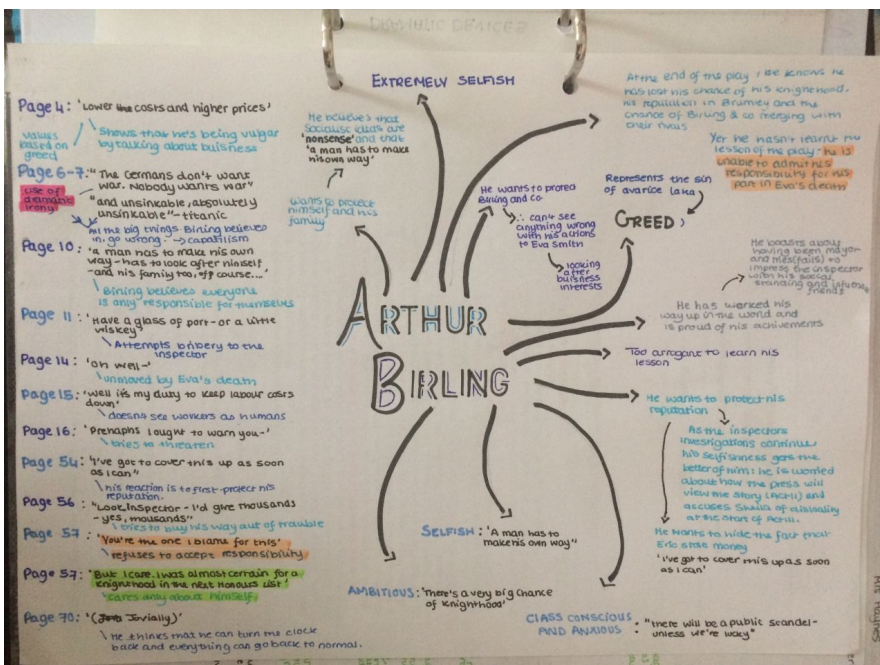 DRAMATIC DEVICES
EXTREMELY SELFISH
Page 4: 'Lower the costs and higher prices'
values
based on
greed
Shows that he's being vulgar
by talking about buisness
Page 6-7: "The Germans don't want
war. Nobody wants war"
use of
dramatic
irony!
"and unsinkable, absolutely
unsinkable" - titanic
All the big things Birling believed
in, go wrong. → capitalism
Page 10: 'a man has to make his own
way - has to look after himself
- and his family too, off course...'
Birling believes everyone
is only responsible for themselves
Page 11: 'Have a glass of port - or a little
whiskey'
Attempts bribery to the
inspector
Page 14: 'oh well-'
unmoved by Eva's death
Page 15: 'Well it's my duty to keep labour costs
down'
doesn't see workers as humans
Page 16: 'Prehaphs I ought to warn you-'
tries to threaten
Page 54: 'I've got to cover this up as soon
as I can"
his reaction is to first-protect his
reputation.
Page 56: "Look, Inspector - I'd give thousands
- yes, thousands"
tries to buy his way out of trouble
Page 57: 'You're the one I blame for this'
refuses to accept responsibility
Page 57: 'But I care. I was almost certain for a
knighthood in the next Honours List'
cares only about himself
Page 70: '(Jovially)'
He thinks that he can turn the clock
back and everything can go back to normal.
He believes that
socialise ideas are
'nonsense' and that
'a man has to make
his own way'
wants to protect
himself and his
family
ARTHUR
BIRLING
He wants to protect
Birling and co.
∴ can't see
anything wrong
with his actions
to Eva Smith
looking
after
buisness
interests
At the end of the play, he knows he
has lost his chance of his knighthood,
his reputation in Brumley and the
chance of Birling & co merging with
their rivals
Yer he hasn't learnt the
lesson of the play - he is
unable to admit his
responsibility for his
part in Eva's death
Represents the sin
of avarice (aka,
GREED)
He boasts about
having been mayor
and tries (fails) to
impress the inspector
with his social
standing and
friends
He has worked his
way up in the world and
is proud of his achivements
Too arrogant to learn his
lesson
He wants to protect his
reputation
As the inspectors
investigations continue,
his selfishness gets the
better of him: he is worried
about how the press will
view the story (Act II) and
accuses Sheila of disloyalty
at the start of Act III.
He wants to hide the fact that
Eric stole money
'I've got to cover this up as soon
as I can'
SELFISH: 'A man has to
make his own way"
AMBITIOUS: 'There's a very big chance
of knighthood'
CLASS CONSCIOUS
AND ANXIOUS : "there will be a public scandel -
unless we're lucky"